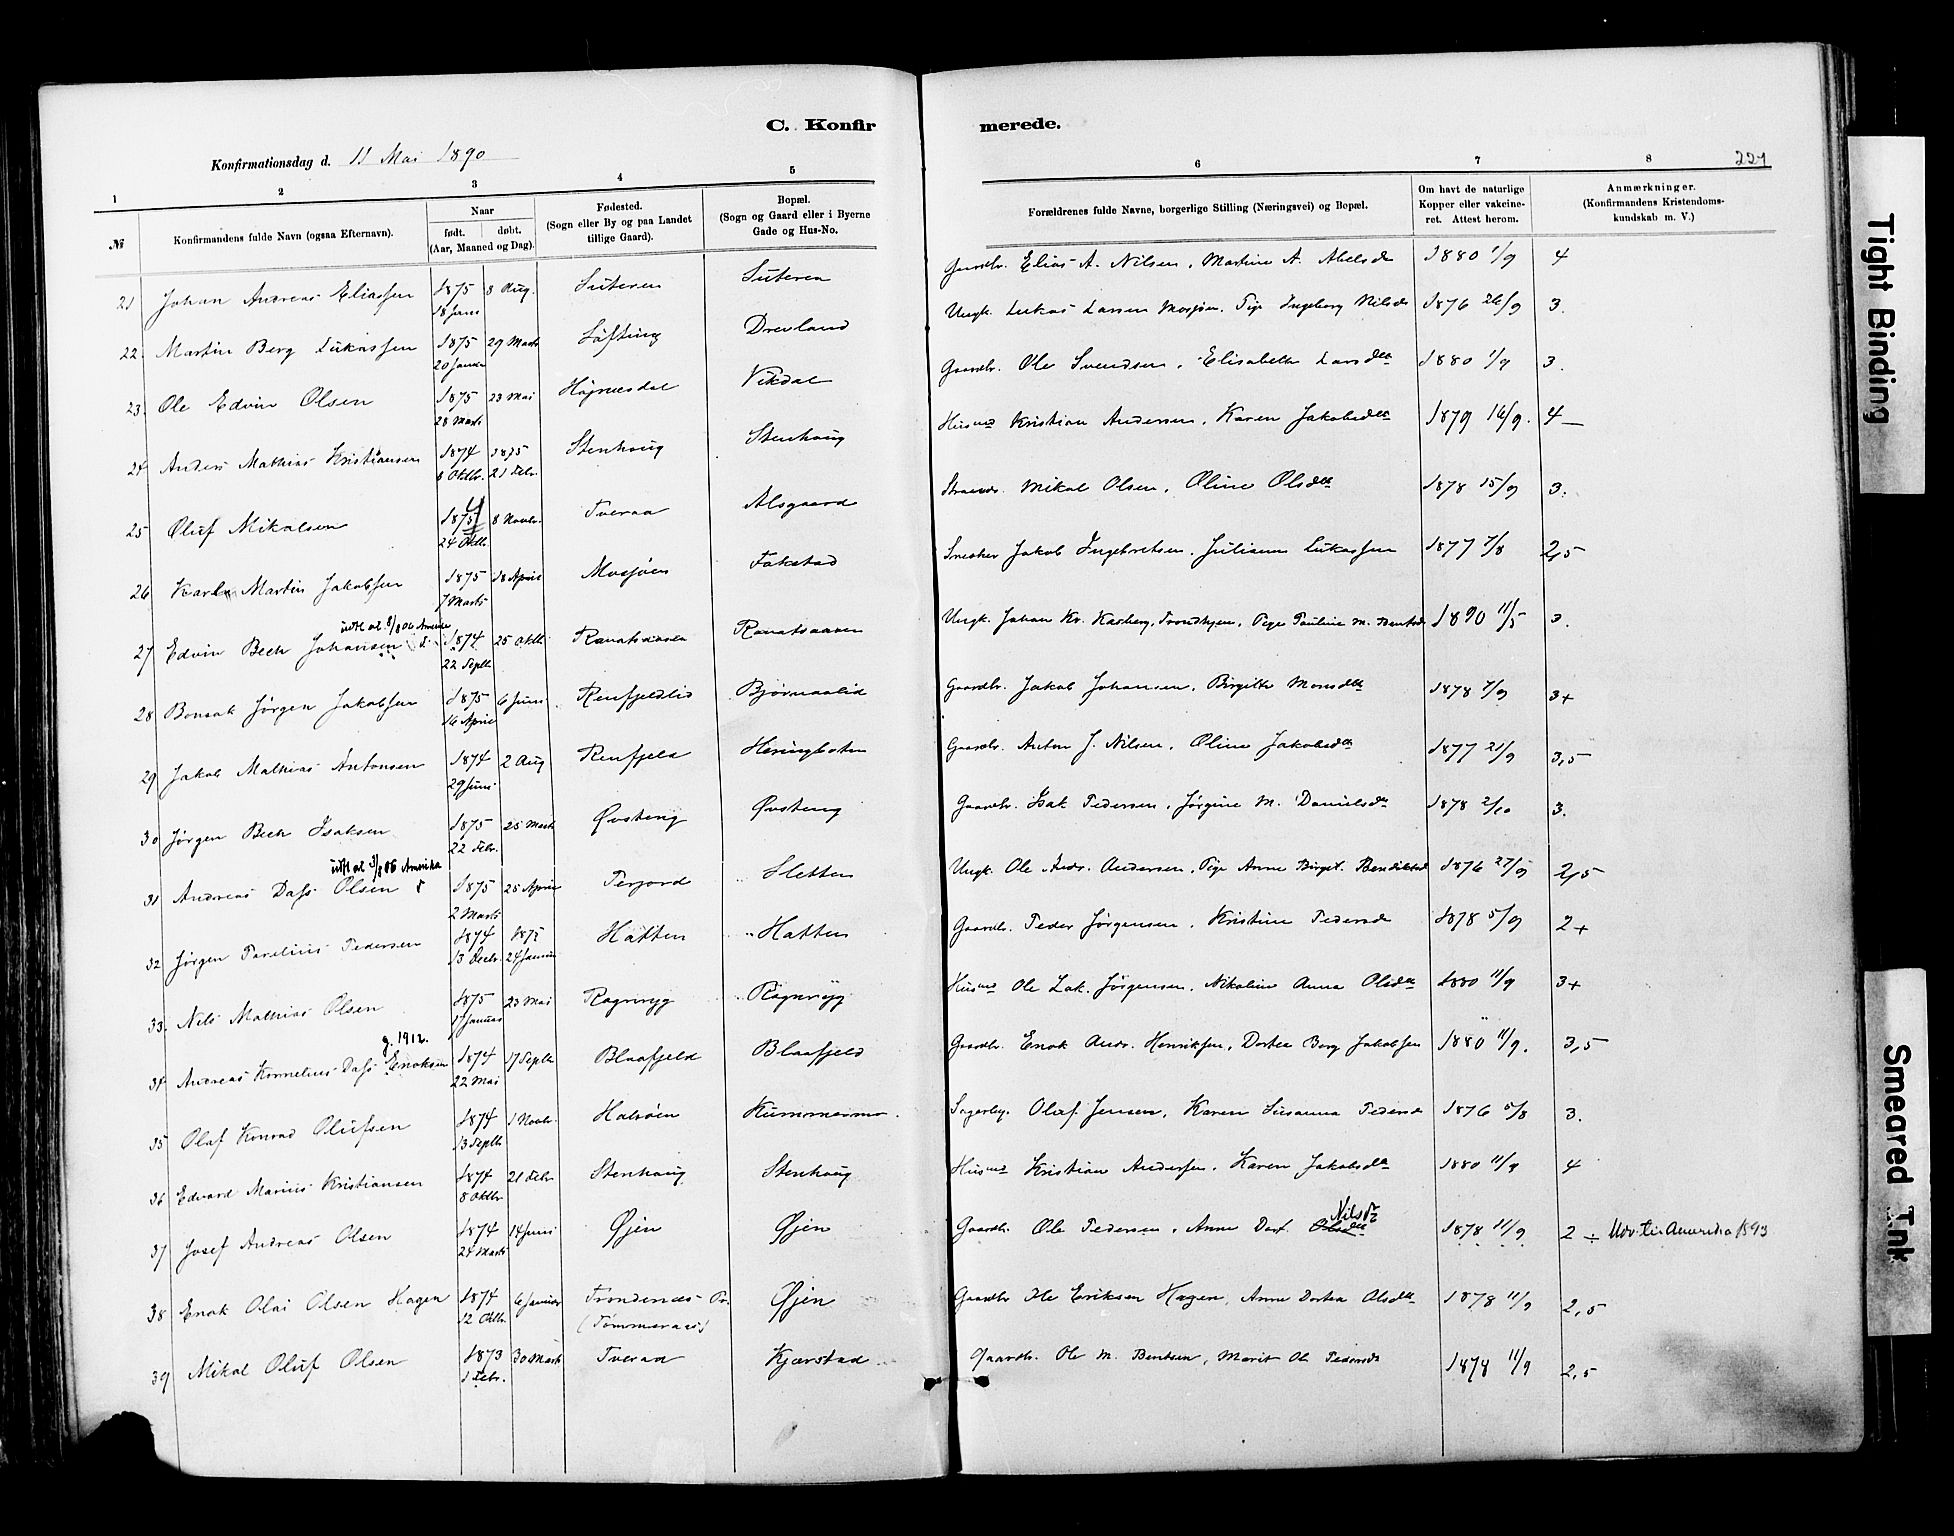 C. Konfir merede.
Konfirmationsdag d. 11 Mai 1890
221
1 2 3 4 5 6 7 8
№
Konfirmandens fulde Navn (ogsaa Efternavn).
Naar
født. døbt.
(Aar, Maaned og Dag).
Fødested.
(Sogn eller By og paa Landet
tillige Gaard).
Bopæl.
(Sogn og Gaard eller i Byerne
Gade og Hus-No.
Forældrenes fulde Navne, borgerlige Stilling (Næringsvei) og Bopæl.
Om havt de naturlige
Kopper eller vakcine-
ret. Attest herom.
Anmærkninger.
(Konfirmandens Kristendoms-
kundskab m. V.)
21 Johan Andreas Eliassen 1875 8 Aug. Gaardbr. Elias A. Nilsen, Martine A. Abelsd 1880 1/9 4
18 Juni
22. Martin Berg Lukassen 1875 29 Marts Løfting Drevland Ungk. Lukas Larsen Mosjøen. Pige Ingeborg Nilsd 1876 26/9 3.
20 Januar
23. Ole Edvin Olsen 1875 23 Mai Højnæsdal Vikdal Gaardbr. Ole Svendsen, Elisabeth Larsdtr 1880 1/9 3.
28 Marts
24 Anders Mathias Kristiansen 1874 1875 Stenhaug Stenhaug Husmd Kristian Andersen, Karen Jakobsdtr 1879 16/9. 4 —
8 Oktbr. 21 Febr.
25 Oluf Mikalsen 1875 4 8 Novbr. Tveraa Alsgaard Mikal Olsen, Oline Olsdtr 1878 15/9 3.
24 Oktb
26 Karl Martin Jakobsen 1875 18 April Mosjøen Fokstad Snedker Jakob Ingebretsen, Juliane Lukassen 1877 7/8 2,5
7 Marts
udfl at 3/8 06 Amerika
27 Edvin Bech Johansen 1874 25 Oktb Ranatsaasen Ranatsaasen Ungk. Johan Kr. Karlberg, Trondhjem, Pige Pauline M. Bentsd 1890 11/5 3.
22 Septb
28 Bonsak Jørgen Jakobsen 1875 6 Juni Renfjeldlid Bjørnaalid Gaardbr. Jakob Johansen, Birgitte Monsdtr 1878 7/9 3+
16 April
29 Jakob Mathias Antonsen 1874 2 Aug Renfjeld Heringboten Gaardbr. Anton J. Nilsen, Oline Jakobsdtr 1877 21/9 3,5
29 Juni
30 Jørgen Bech Isaksen 1875 25 Marts Øvsteng Øvsteng Gaardbr. Isak Pedersen, Jørgine M. Danielsd 1878 2/10 3.
22 Febr.
udfl at 3/8 06 Amerika
31 Andreas Dass Olsen 1875 25 April Terjord Sletten Ungk. Ole Andr. Andersen, Pige Anne Birgit. Bendiktsd 1876 27/9 2,5
2 Marts
32 Jørgen Parelius Pedersen 1874 1875 Hatten Hatten Gaardbr. Peder Jørgensen, Kristine Pedersd 1878 5/9 2+
13 Decbr. 24 Januar
33. Nils Mathias Olsen 1875 23 Mai Ragnryg Ragnryg Husmd Ole Zak. Jørgensen, Nikoline Anna Olsdtr 1880 11/9 3+
17 Januar
g. 1912.
34 Andreas Kornelius Dass Enoksen 1874 17 Septb Blaafjeld Blaafjeld Gaardbr. Enok Andr. Henriksen, Dortea Berg Jakobsen 1880 11/9. 3,5
22 Mai
35 Olaf Konrad Olufsen 1874 1 Novbr. Halsøen Kummermo. Sagarb. Oluf Jensen, Karen Susanna Pedersd 1876 5/8 3.
13 Septb
36 Edvard Marius Kristiansen 1874 21 Febr Stenhaug Stenhaug Husmd Kristian Andersen, Karen Jakobsdtr 1880 11/9 4
8 Oktbr
37 Josef Andreas Olsen 1874 14 Juni Øjen Øjen Gaardbr. Ole Pedersen, Anne Dort. Olsdtr Nilsdtr 1878 11/9 2 ÷ Udv. til Amerika 1893
24 Marts
38 Enok Olai Olsen Hagen 1874 6 Januar Trondenæs Pr. Øjen Gaardbr Ole Eriksen Hagen, Anne Dortea Olsdtr 1878 11/9 2,5
12 Oktbr (Tømmeraas)
39 Mikal Oluf Olsen 1873 30 Marts Tveraa Kjærstad Gaardbr. Ole M. Bentsen, Marit Ol. Pedersd 1878 11/9 2,5
1 Febr.
Tight Binding
Smeared Ink